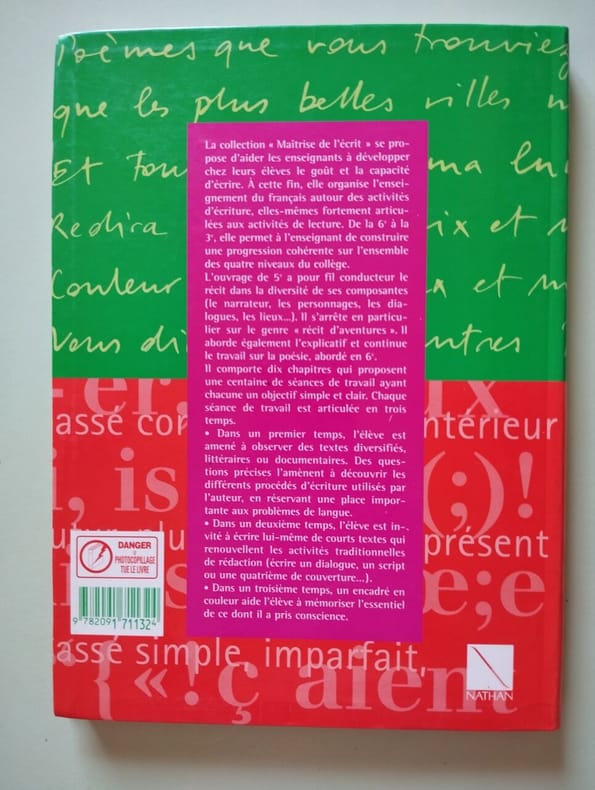 Poèmes que vous trouviez
que les plus belles villes n
Et tou ma lu
Redira ix et n
Couleur x et n
Vous di ntres
La collection « Maîtrise de l'écrit » se pro-
pose d'aider les enseignants à développer
chez leurs élèves le goût et la capacité
d'écrire. À cette fin, elle organise l'ensei-
gnement du français autour des activités
d'écriture, elles-mêmes fortement articu-
lées aux activités de lecture. De la 6e à la
3e, elle permet à l'enseignant de construire
une progression cohérente sur l'ensemble
des quatre niveaux du collège.
L'ouvrage de 5e a pour fil conducteur le
récit dans la diversité de ses composantes
(le narrateur, les personnages, les dia-
logues, les lieux...). Il s'arrête en particu-
lier sur le genre « récit d'aventures ». Il
aborde également l'explicatif et continue
le travail sur la poésie, abordé en 6e.
Il comporte dix chapitres qui proposent
une centaine de séances de travail ayant
chacune un objectif simple et clair. Chaque
séance de travail est articulée en trois
temps.
• Dans un premier temps, l'élève est
amené à observer des textes diversifiés,
littéraires ou documentaires. Des ques-
tions précises l'amènent à découvrir les
différents procédés d'écriture utilisés par
l'auteur, en réservant une place impor-
tante aux problèmes de langue.
• Dans un deuxième temps, l'élève est in-
vité à écrire lui-même de courts textes qui
renouvellent les activités traditionnelles
de rédaction (écrire un dialogue, un script
ou une quatrième de couverture...).
• Dans un troisième temps, un encadré en
couleur aide l'élève à mémoriser l'essentiel
de ce dont il a pris conscience.
-er, ux
assé con ntérieur
i, is (;)!
présent
œ;e
assé simple, imparfait,
{«!ç aient
DANGER
LE
PHOTOCOPILLAGE
TUE LE LIVRE
9 782091 711324
NATHAN